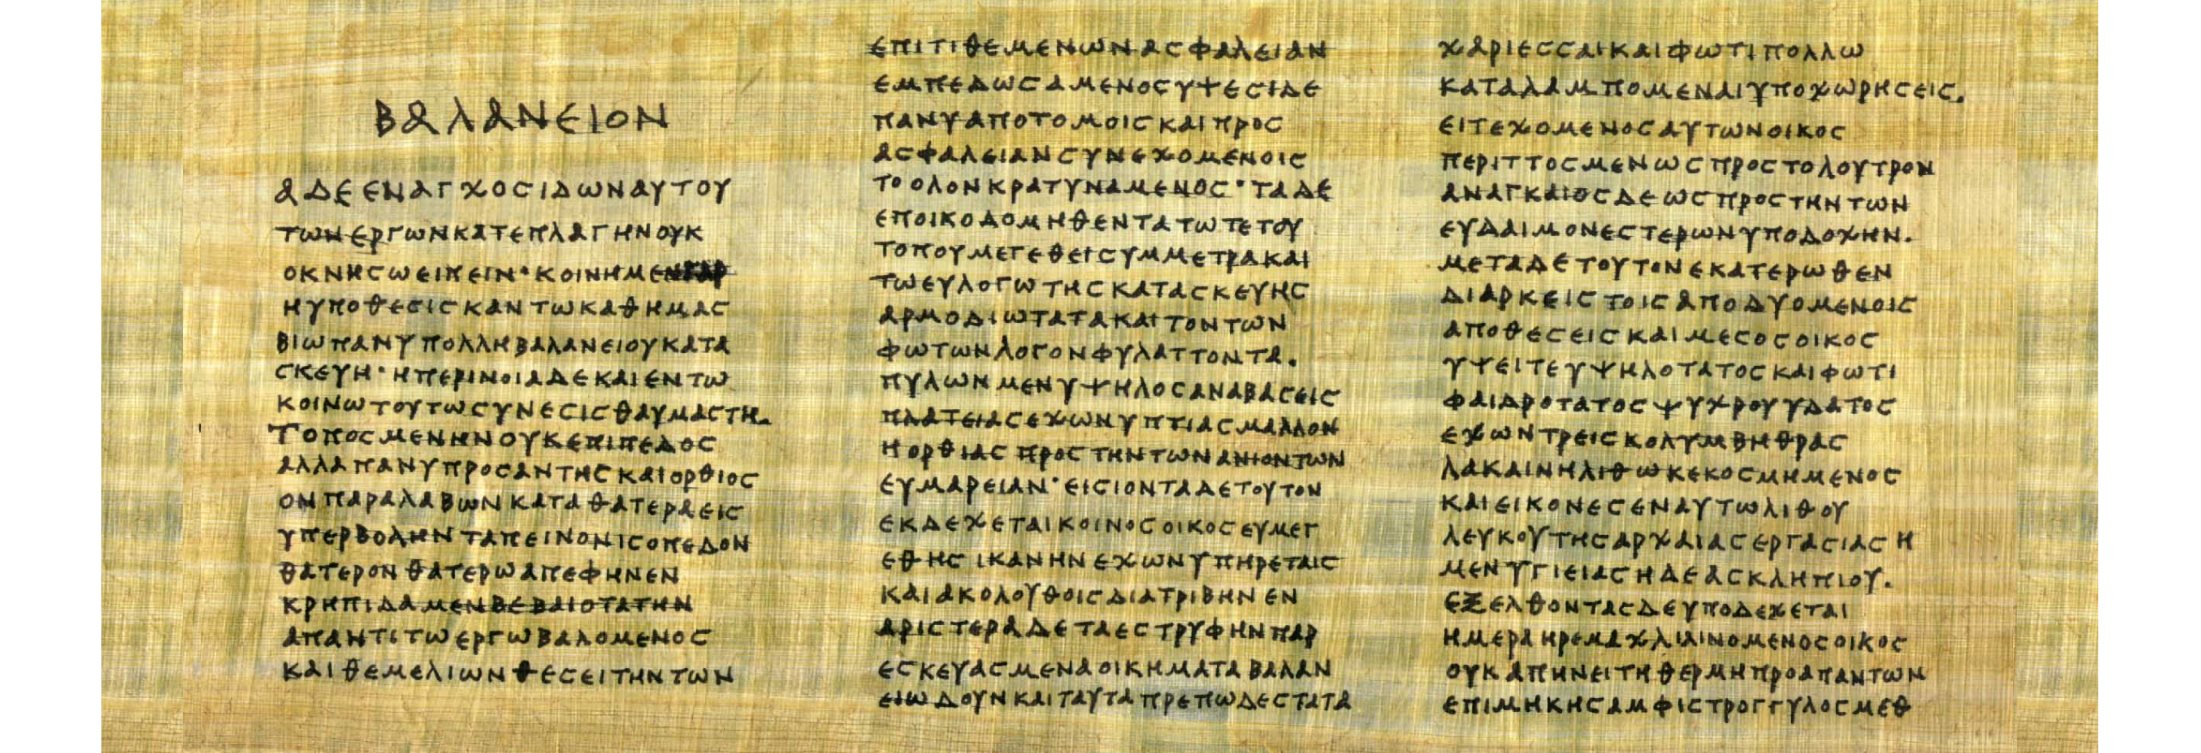 ΒΑΛΑΝΕΙΟΝ
ΑΔΕΕΝΑΓΧΟϹΙΔΩΝΑΥΤΟΥ
ΤΩΝΕΡΓΩΝΚΑΤΕΠΛΑΓΗΝΟΥΚ
ΟΚΝΗϹΩΕΙΠΕΙΝ·ΚΟΙΝΗΜΕΝΓΑΡ
ΗΥΠΟΘΕϹΙϹΚΑΝΤΩΚΑΘΗΜΑϹ
ΒΙΩΠΑΝΥΠΟΛΛΗΒΑΛΑΝΕΙΟΥΚΑΤΑ
ϹΚΕΥΗ·ΗΠΕΡΙΝΟΙΑΔΕΚΑΙΕΝΤΩ
ΚΟΙΝΩΤΟΥΤΩϹΥΝΕϹΙϹΘΑΥΜΑϹΤΗ.
ΤΟΠΟϹΜΕΝΗΝΟΥΚΕΠΙΠΕΔΟϹ
ΑΛΛΑΠΑΝΥΠΡΟϹΑΝΤΗϹΚΑΙΟΡΘΙΟϹ
ΟΝΠΑΡΑΛΑΒΩΝΚΑΤΑΘΑΤΕΡΑΕΙϹ
ΥΠΕΡΒΟΛΗΝΤΑΠΕΙΝΟΝΙϹΟΠΕΔΟΝ
ΘΑΤΕΡΟΝΘΑΤΕΡΩΑΠΕΦΗΝΕΝ
ΚΡΗΠΙΔΑΜΕΝΒΕΒΑΙΟΤΑΤΗΝ
ΑΠΑΝΤΙΤΩΕΡΓΩΒΑΛΟΜΕΝΟϹ
ΚΑΙΘΕΜΕΛΙΩΝΘΕϹΕΙΤΗΝΤΩΝ
ΕΠΙΤΙΘΕΜΕΝΩΝΑϹΦΑΛΕΙΑΝ
ΕΜΠΕΔΩϹΑΜΕΝΟϹΥΨΕϹΙΔΕ
ΠΑΝΥΑΠΟΤΟΜΟΙϹΚΑΙΠΡΟϹ
ΑϹΦΑΛΕΙΑΝϹΥΝΕΧΟΜΕΝΟΙϹ
ΤΟΟΛΟΝΚΡΑΤΥΝΑΜΕΝΟϹ·ΤΑΔΕ
ΕΠΟΙΚΟΔΟΜΗΘΕΝΤΑΤΩΤΕΤΟΥ
ΤΟΠΟΥΜΕΓΕΘΕΙϹΥΜΜΕΤΡΑΚΑΙ
ΤΩΕΥΛΟΓΩΤΗϹΚΑΤΑϹΚΕΥΗϹ
ΑΡΜΟΔΙΩΤΑΤΑΚΑΙΤΟΝΤΩΝ
ΦΩΤΩΝΛΟΓΟΝΦΥΛΑΤΤΟΝΤΑ.
ΠΥΛΩΝΜΕΝΥΨΗΛΟϹΑΝΑΒΑϹΕΙϹ
ΠΛΑΤΕΙΑϹΕΧΩΝΥΠΤΙΑϹΜΑΛΛΟΝ
ΗΟΡΘΙΑϹΠΡΟϹΤΗΝΤΩΝΑΝΙΟΝΤΩΝ
ΕΥΜΑΡΕΙΑΝ·ΕΙϹΙΟΝΤΑΔΕΤΟΥΤΟΝ
ΕΚΔΕΧΕΤΑΙΚΟΙΝΟϹΟΙΚΟϹΕΥΜΕΓ
ΕΘΗϹΙΚΑΝΗΝΕΧΩΝΥΠΗΡΕΤΑΙϹ
ΚΑΙΑΚΟΛΟΥΘΟΙϹΔΙΑΤΡΙΒΗΝΕΝ
ΑΡΙϹΤΕΡΑΔΕΤΑΕϹΤΡΥΦΗΝΠΑΡ
ΕϹΚΕΥΑϹΜΕΝΑΟΙΚΗΜΑΤΑΒΑΛΑΝ
ΕΙΩΔΟΥΝΚΑΙΤΑΥΤΑΠΡΕΠΩΔΕϹΤΑΤΑ
ΧΑΡΙΕϹϹΑΙΚΑΙΦΩΤΙΠΟΛΛΩ
ΚΑΤΑΛΑΜΠΟΜΕΝΑΙΥΠΟΧΩΡΗϹΕΙϹ.
ΕΙΤΕΧΟΜΕΝΟϹΑΥΤΩΝΟΙΚΟϹ
ΠΕΡΙΤΤΟϹΜΕΝΩϹΠΡΟϹΤΟΛΟΥΤΡΟΝ
ΑΝΑΓΚΑΙΟϹΔΕΩϹΠΡΟϹΤΗΝΤΩΝ
ΕΥΔΑΙΜΟΝΕϹΤΕΡΩΝΥΠΟΔΟΧΗΝ.
ΜΕΤΑΔΕΤΟΥΤΟΝΕΚΑΤΕΡΩΘΕΝ
ΔΙΑΡΚΕΙϹΤΟΙϹΑΠΟΔΥΟΜΕΝΟΙϹ
ΑΠΟΘΕϹΕΙϹΚΑΙΜΕϹΟϹΟΙΚΟϹ
ΥΨΕΙΤΕΥΨΗΛΟΤΑΤΟϹΚΑΙΦΩΤΙ
ΦΑΙΔΡΟΤΑΤΟϹΨΥΧΡΟΥΥΔΑΤΟϹ
ΕΧΩΝΤΡΕΙϹΚΟΛΥΜΒΗΘΡΑϹ
ΛΑΚΑΙΝΗΛΙΘΩΚΕΚΟϹΜΗΜΕΝΟϹ
ΚΑΙΕΙΚΟΝΕϹΕΝΑΥΤΩΛΙΘΟΥ
ΛΕΥΚΟΥΤΗϹΑΡΧΑΙΑϹΕΡΓΑϹΙΑϹΗ
ΜΕΝΥΓΙΕΙΑϹΗΔΕΑϹΚΛΗΠΙΟΥ.
ΕΞΕΛΘΟΝΤΑϹΔΕΥΠΟΔΕΧΕΤΑΙ
ΗΜΕΡΑΗΡΕΜΑΧΛΙΑΙΝΟΜΕΝΟϹΟΙΚΟϹ
ΟΥΚΑΠΗΝΕΙΤΗΘΕΡΜΗΠΡΟΑΠΑΝΤΩΝ
ΕΠΙΜΗΚΗϹΑΜΦΙϹΤΡΟΓΓΥΛΟϹΜΕΘ